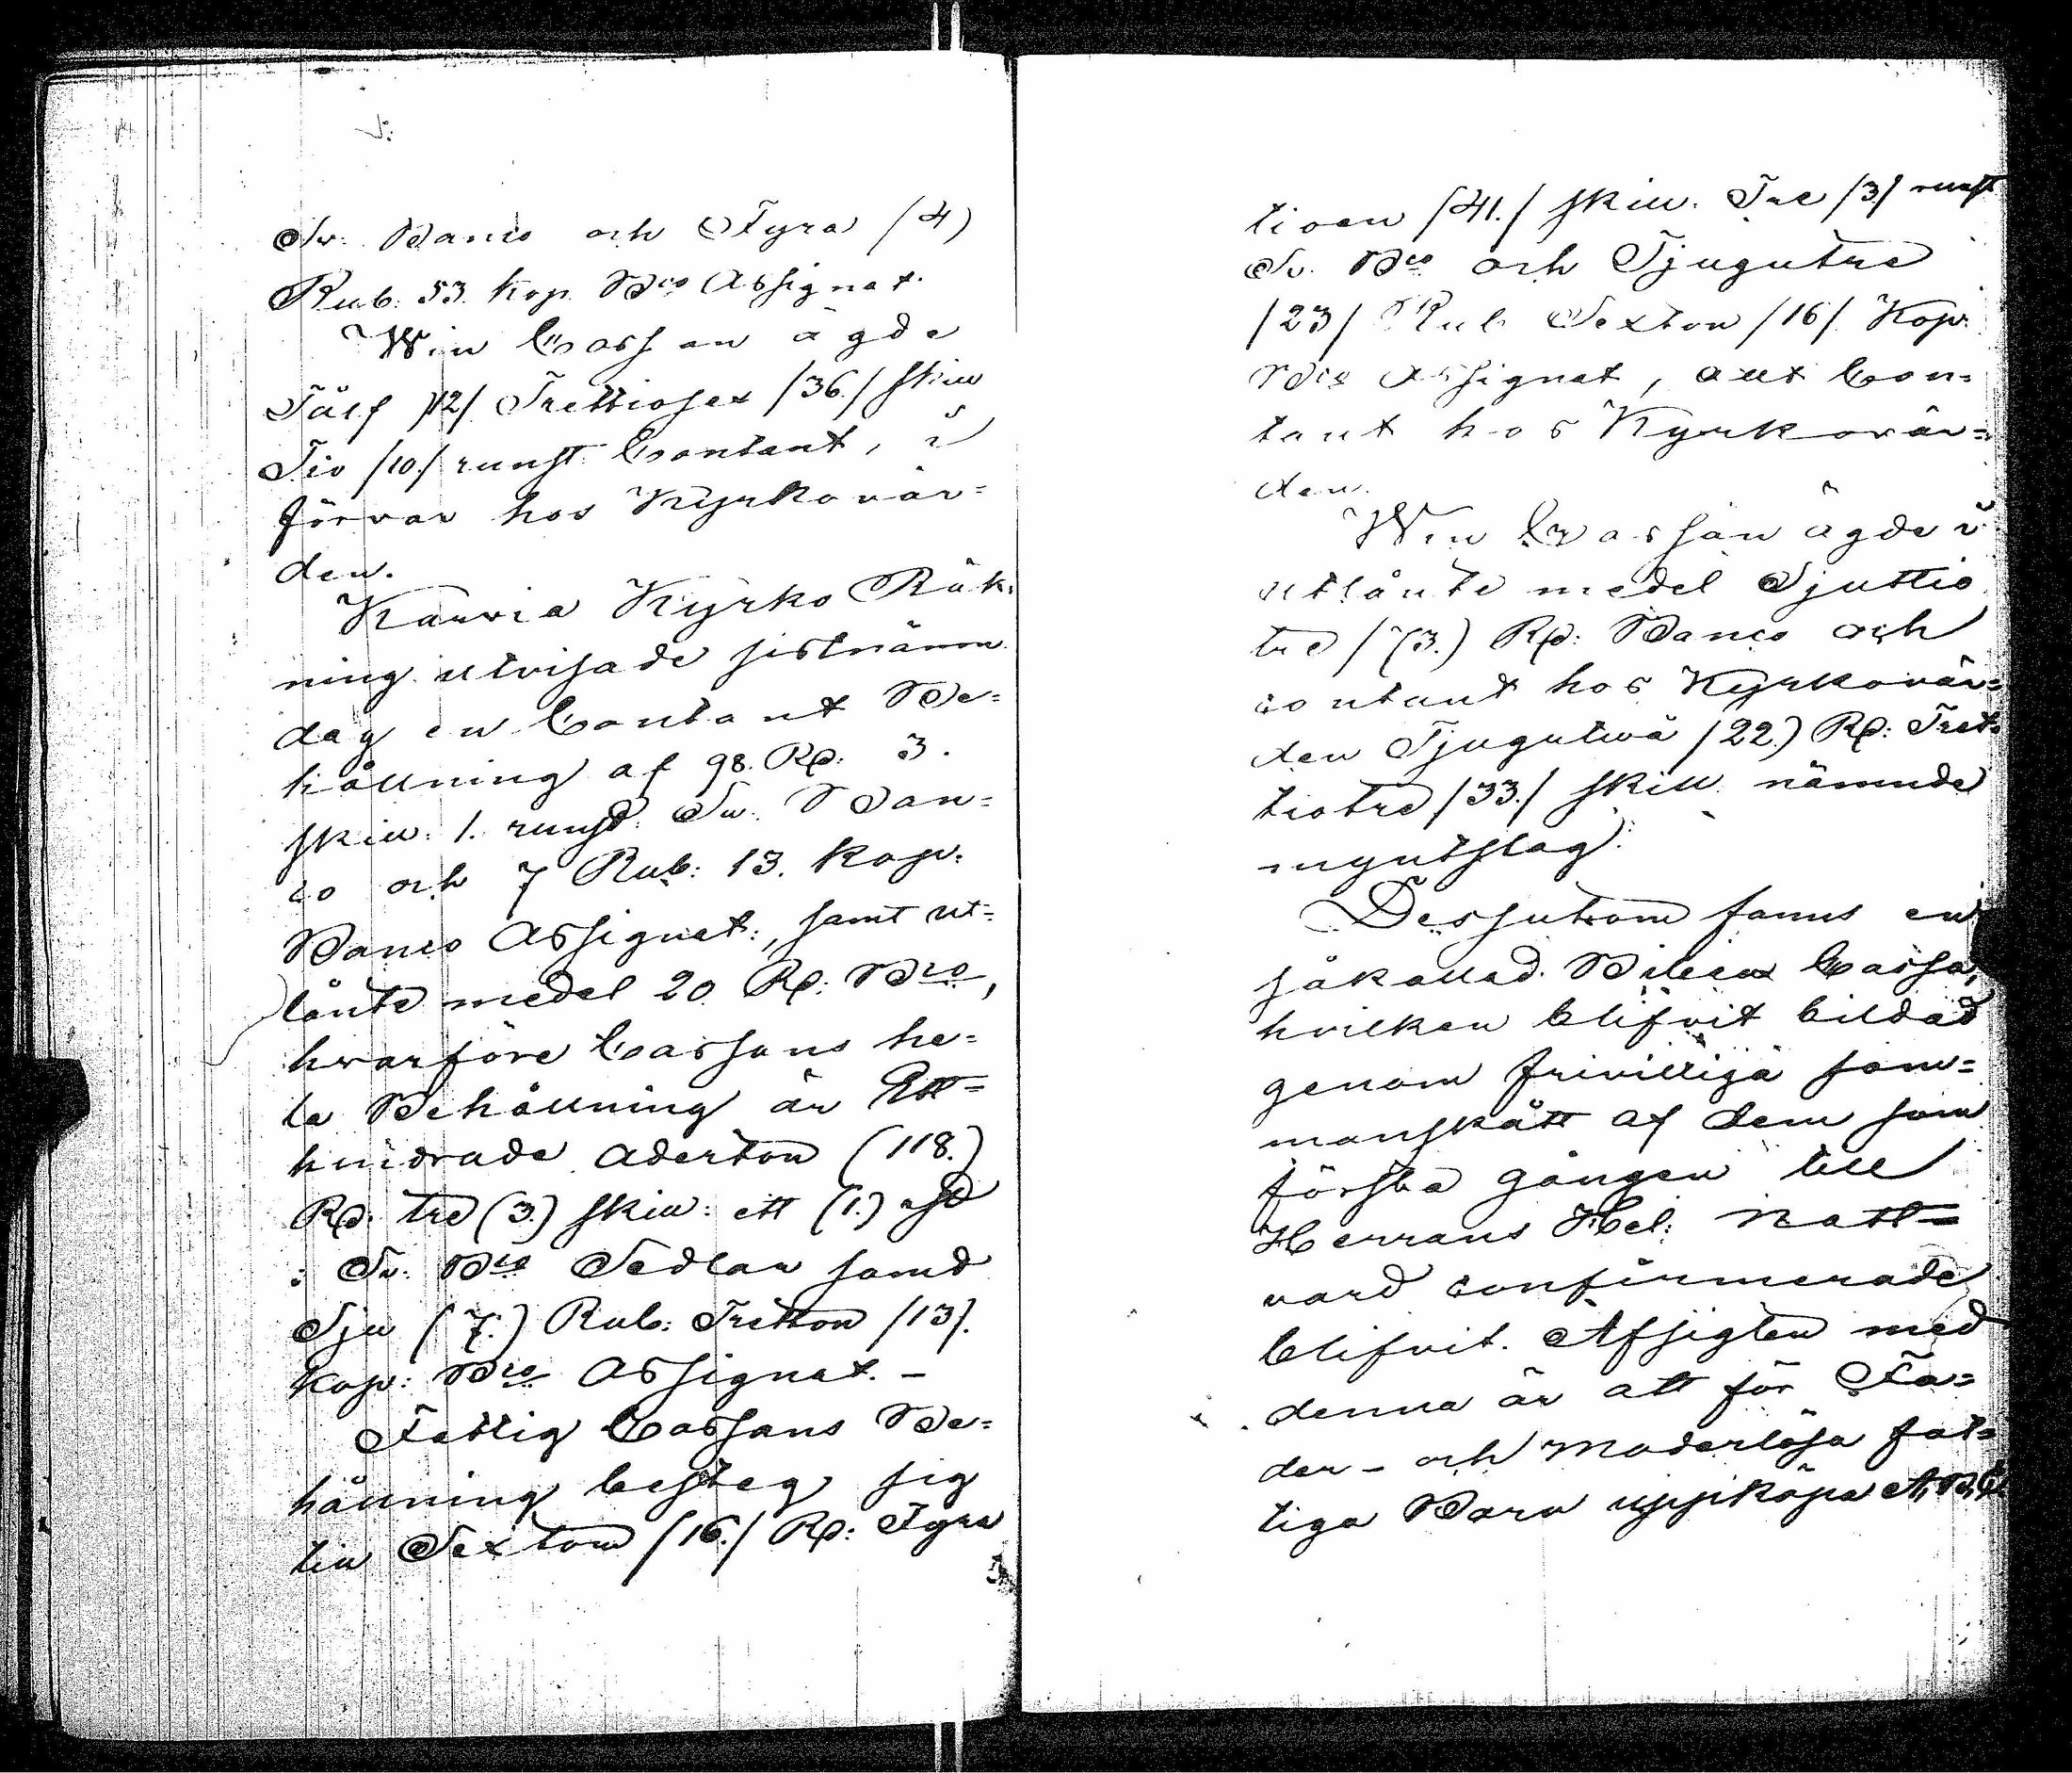 Sv. Banco och Fyra (4)
Rub: 53. Kop. Bco Assignat.
Win Cassan ägde
Tålf /12/ Trettiosex /36./ skill
Tio /10./ runst. Contant, i
förvar hos Kyrkovär=
den.
Karvia Kyrko Räk:
ning utvisade sistnämn
dag en Contant Be=
hållning af 98. Rd: 3.
skill: 1. runst: Sv. Ban=
co och 7 Rub: 13. Kop:
Banco Assignat:, samt ut=
lånte medel 20 Rd: Bco,
hvarföre Cassans he=
la Behållning är Ett=
hundrade aderton (118.)
Rd: tre (3.) skill: ett (1.) rst
: Sv: Bco Sedlar samt
Sju (7.) Rub: Tretton /13/.
Kop: Bco Assignat. -
Fattig Cassans Be=
hållning besteg sig
till Sexton /16./ Rd: Fyra
tioen /41./ skill. Tre /3/ runst
Sv. Bco och Tjugutre
/23/ Rub Sexton /16/ Kop.
Bco Assignat, allt Con=
tant hos Kyrkovär=
den.
Win Cassan ägde i
utlånte medel Sjuttio
tre /73.) Rd: Banco och
contant hos Kyrkovär=
den Tjugutvå /22.) Rd: Tret=
tiotre /33./ skill nämnde
myntslag.
Dessutom fanns en
såkallad Bibel Cassa,
hvilken blifvit bildad
genom frivilliga sam=
manskått af dem som
första gången till
Herrans Hel: Natt=
vard confirmerade
blifvit. Afsigten med
denna är att för Fa=
der- och Moderlösa fat=
tiga Barn uppköpa A, B, C